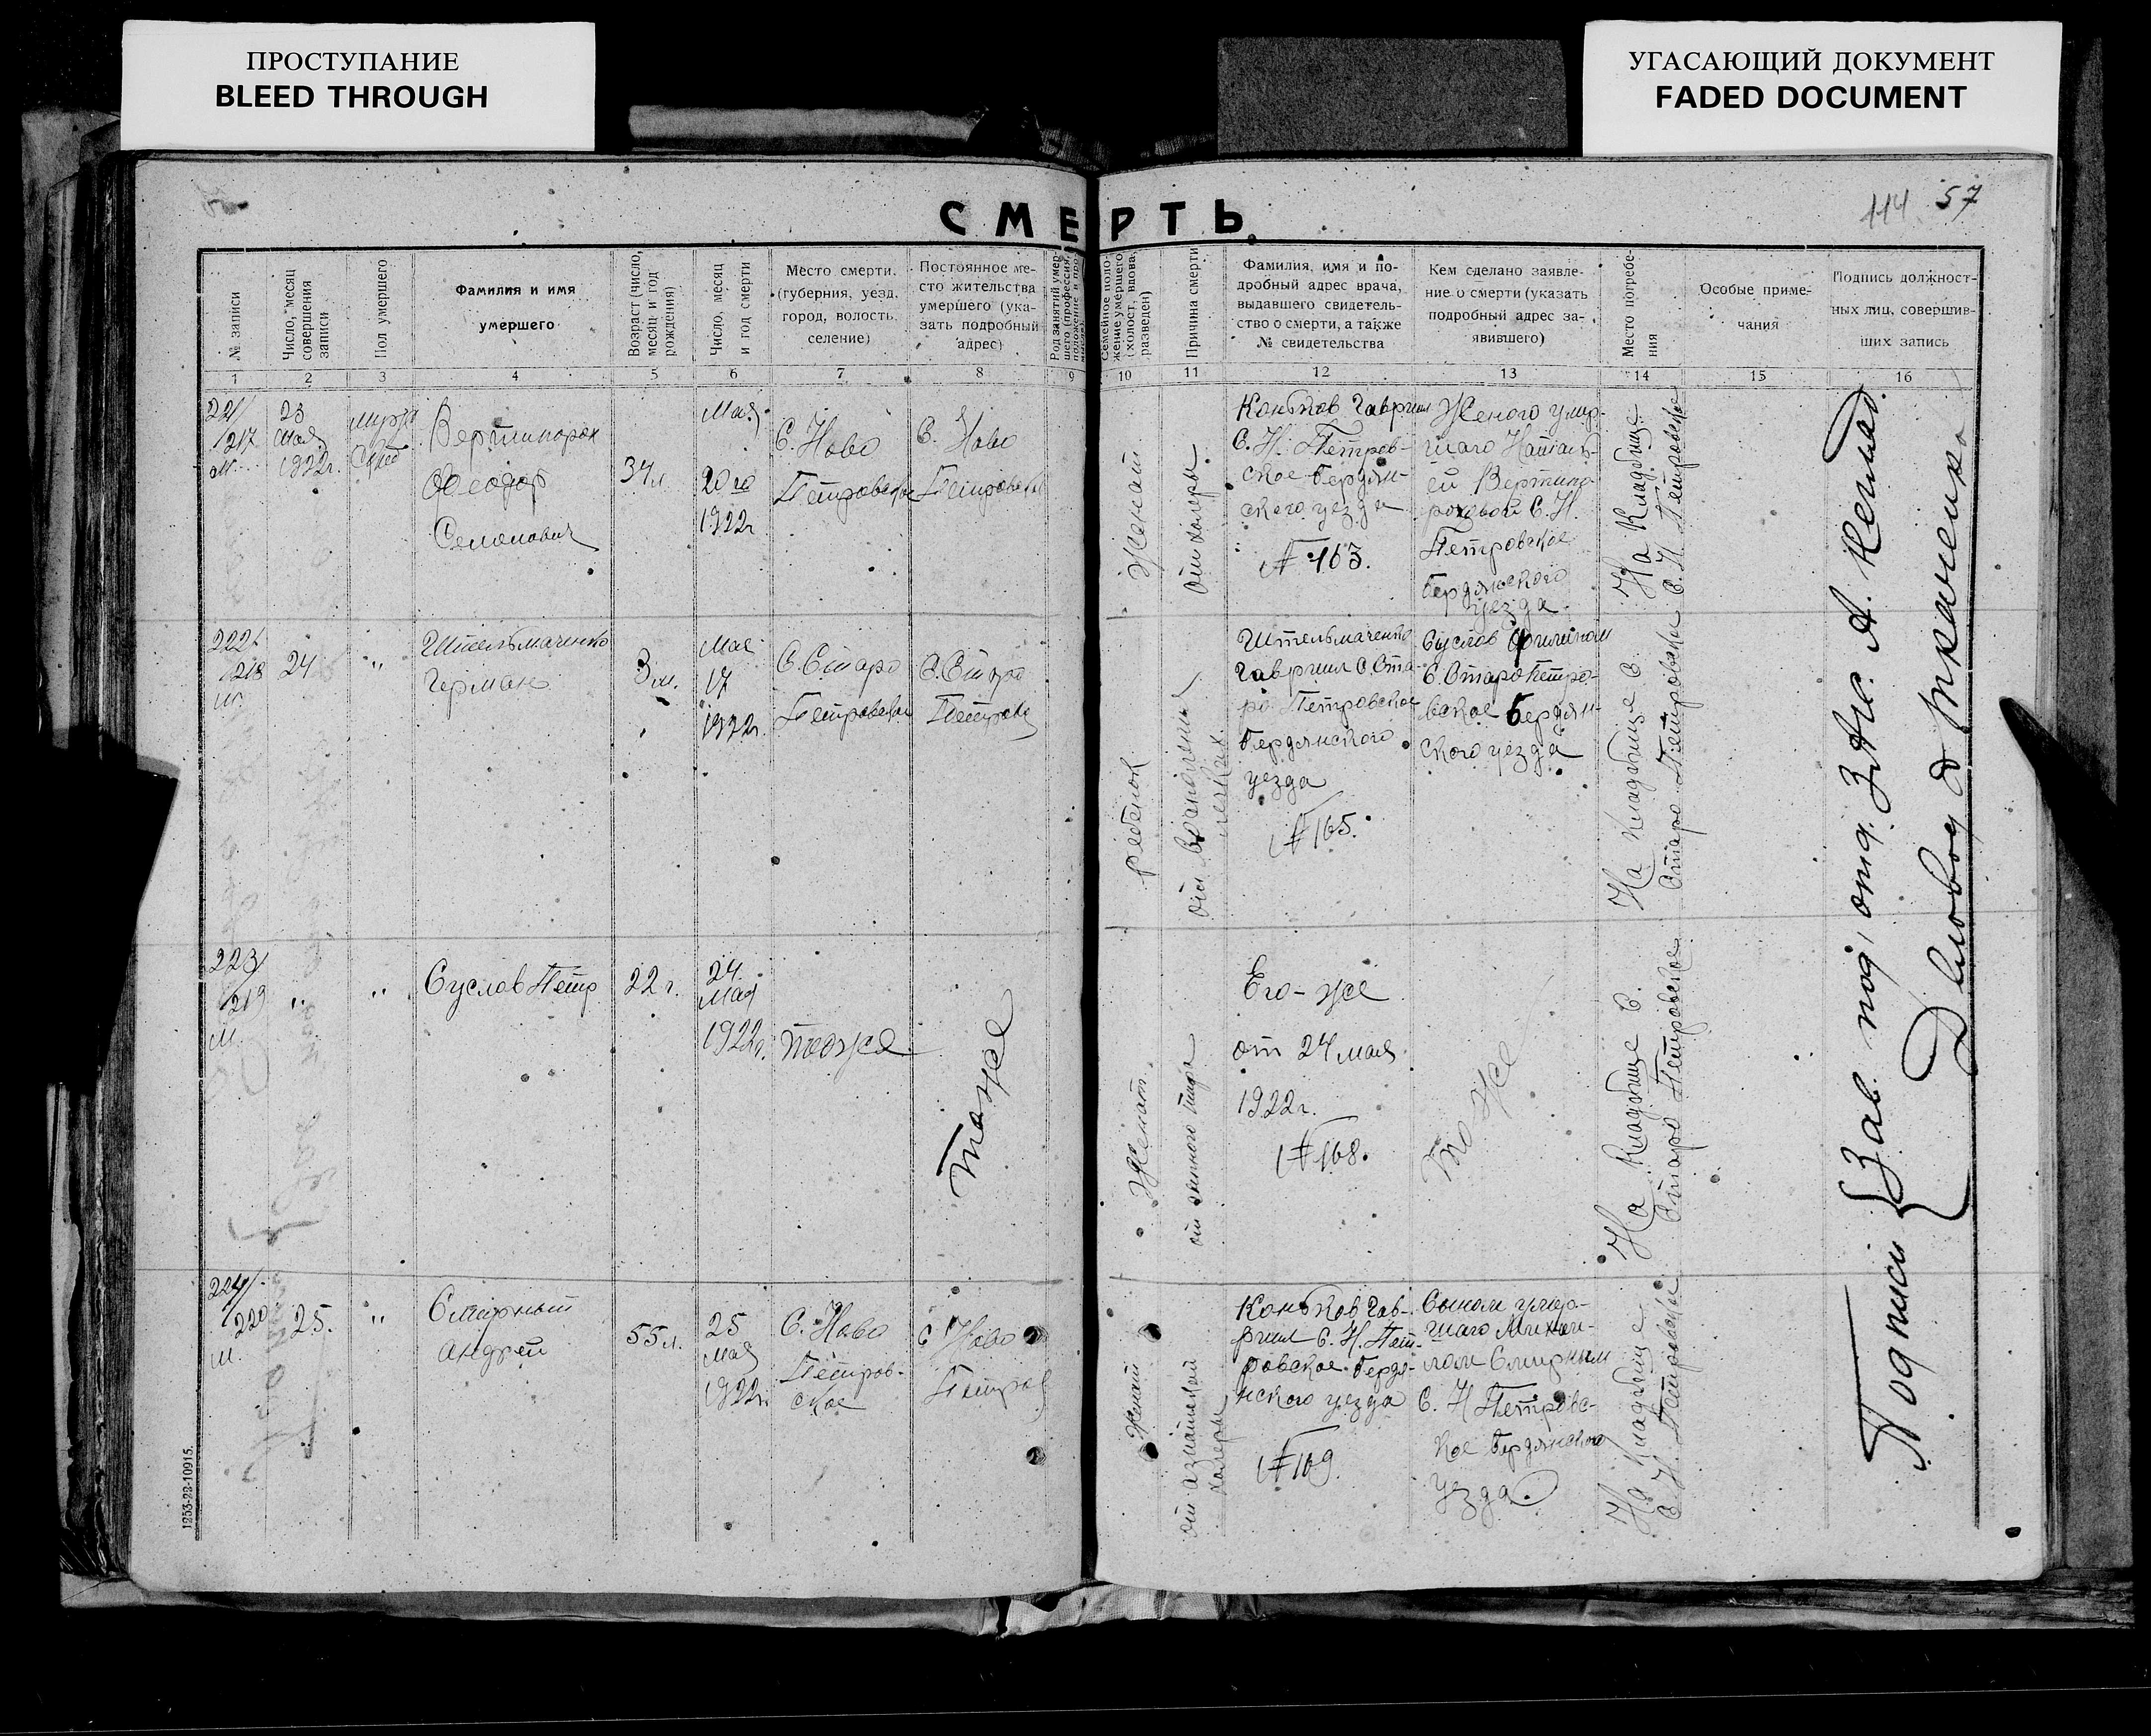 ПРОСТУПАНИЕ
BLEED THROUGH
УГАСАЮЩИЙ ДОКУМЕНТ
FADED DOCUMENT
114 57
СМЕРТЬ
№ записи
Число, месяц
совершения
записи
Пол умершего
Фамилия и имя
умершего
Возраст (число,
месяц и год
рождения)
Число, месяц
и год смерти
Место смерти.
(губерния, уезд,
город, волость,
селение)
Постоянное ме-
сто жительства
умершего (ука-
зать подробный
адрес)
Семейное поло-
жение умершего
(холост, вдова,
разведен)
Причина смерти
Фамилия, имя и по-
дробный адрес врача,
выдавшего свидетель-
ство о смерти, а также
№ свидетельства
Кем сделано заявле-
ние о смерти (указать
подробный адрес за-
явившего)
Место погребе-
ния
Особые приме-
чания
Подпись должност-
ных лиц, совершив-
ших запись
1 2 3 4 5 6 7 8 9 10 11 12 13 14 15 16
221/
217
м.
23
мая
1922г.
Вертипорох
Феодор
Семенович
34 л.
Мая
20го
1922г
С. Ново
Петровское
С. Ново
Петровское
Женат
от холеры
Коньков Гавриил
С. Н. Петров-
ское Бердян-
ского уезда
№ 163.
Женого умер-
шаго Наталь-
ей Вертипо-
роховой С. Н.
Петровское
Бердянского
уезда.
На Кладбище
С. Н. Петровское
222/
218
м.
24
"
Штельмаченко
Герман
3 м.
Мая
17
1922г.
С. Старо
Петровское
С. Старо
Петровс
ребенок
от воспаления
легких.
Штельмаченко
Гавриил С. Ста-
ро Петровское
Бердянского
уезда
№ 165.
Суслов Филипом
С. Старо Петро-
вское Бердян-
ского уезда
На Кладбище С.
Старо Петровское
223/
219
м.
"
"
Суслов Петр
22 г.
24
Мая
1922г.
тоже
тоже
Женат.
Его-же
от 24 мая
1922г.
№ 168.
То же
На Кладбище С.
Старо Петровское
224/
220
м.
25.
"
Смирный
Андрей
55 л.
25
мая
1922г.
С. Ново
Петров-
ское
С. Ново
Петров
Женат
от азиатской
холеры
Коньков Гав-
риил С. Н. Пет-
ровское Бердя-
нского уезда
№ 169.
Сыном умер-
шаго Михаи-
лом Смирным
С. Н Петровс-
кое Бердянского
уезда.
На Кладбище
С. Н. Петровское
Подписи { Зав. под. отд. ЗАГС А.
Деловод Ткаченко
1253-22-10915.